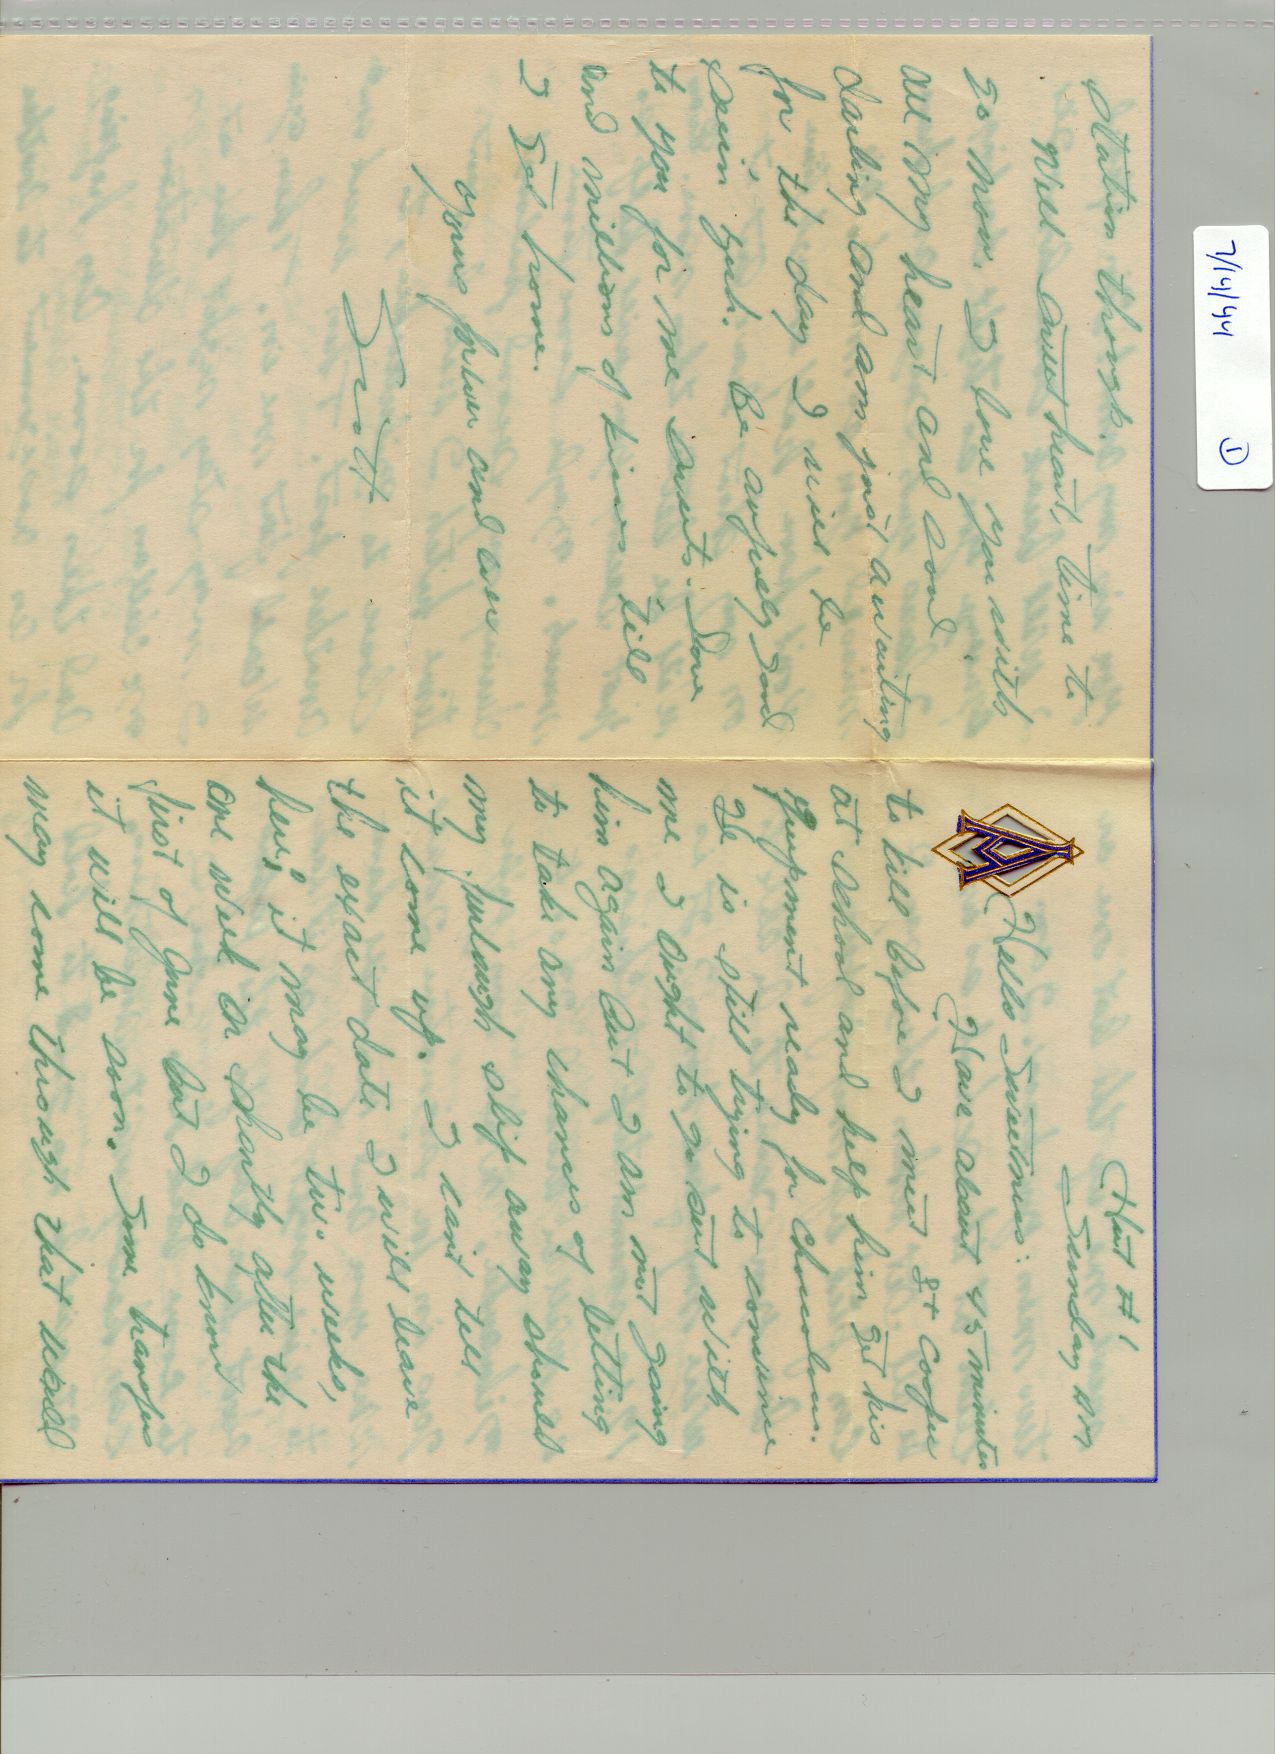 7/14/44 ①
station though.
Well sweetheart, time to
go now. I love you with
all my heart and soul
darling and am just awaiting
for the day I will be
seein' yuh. Be awfully good
to you for me sweets. Love
and millions of kisses 'till
I get home.
Yours forever and ever
Scott
Hut #1
Sunday am
Hello Sweetness:
Have about 45 minutes
to kill before I meet St Cooper
at school and help him get his
equipment ready for
He is still trying to convince
me I ought to go out with
him again but I am not going
to take any chances of letting
my furlough slip away should
it come up. I can't tell
the exact date I will leave
here; it may be two weeks,
one week or shortly after the
first of June but I do know
it will be soon. Some transfers
may come through that would